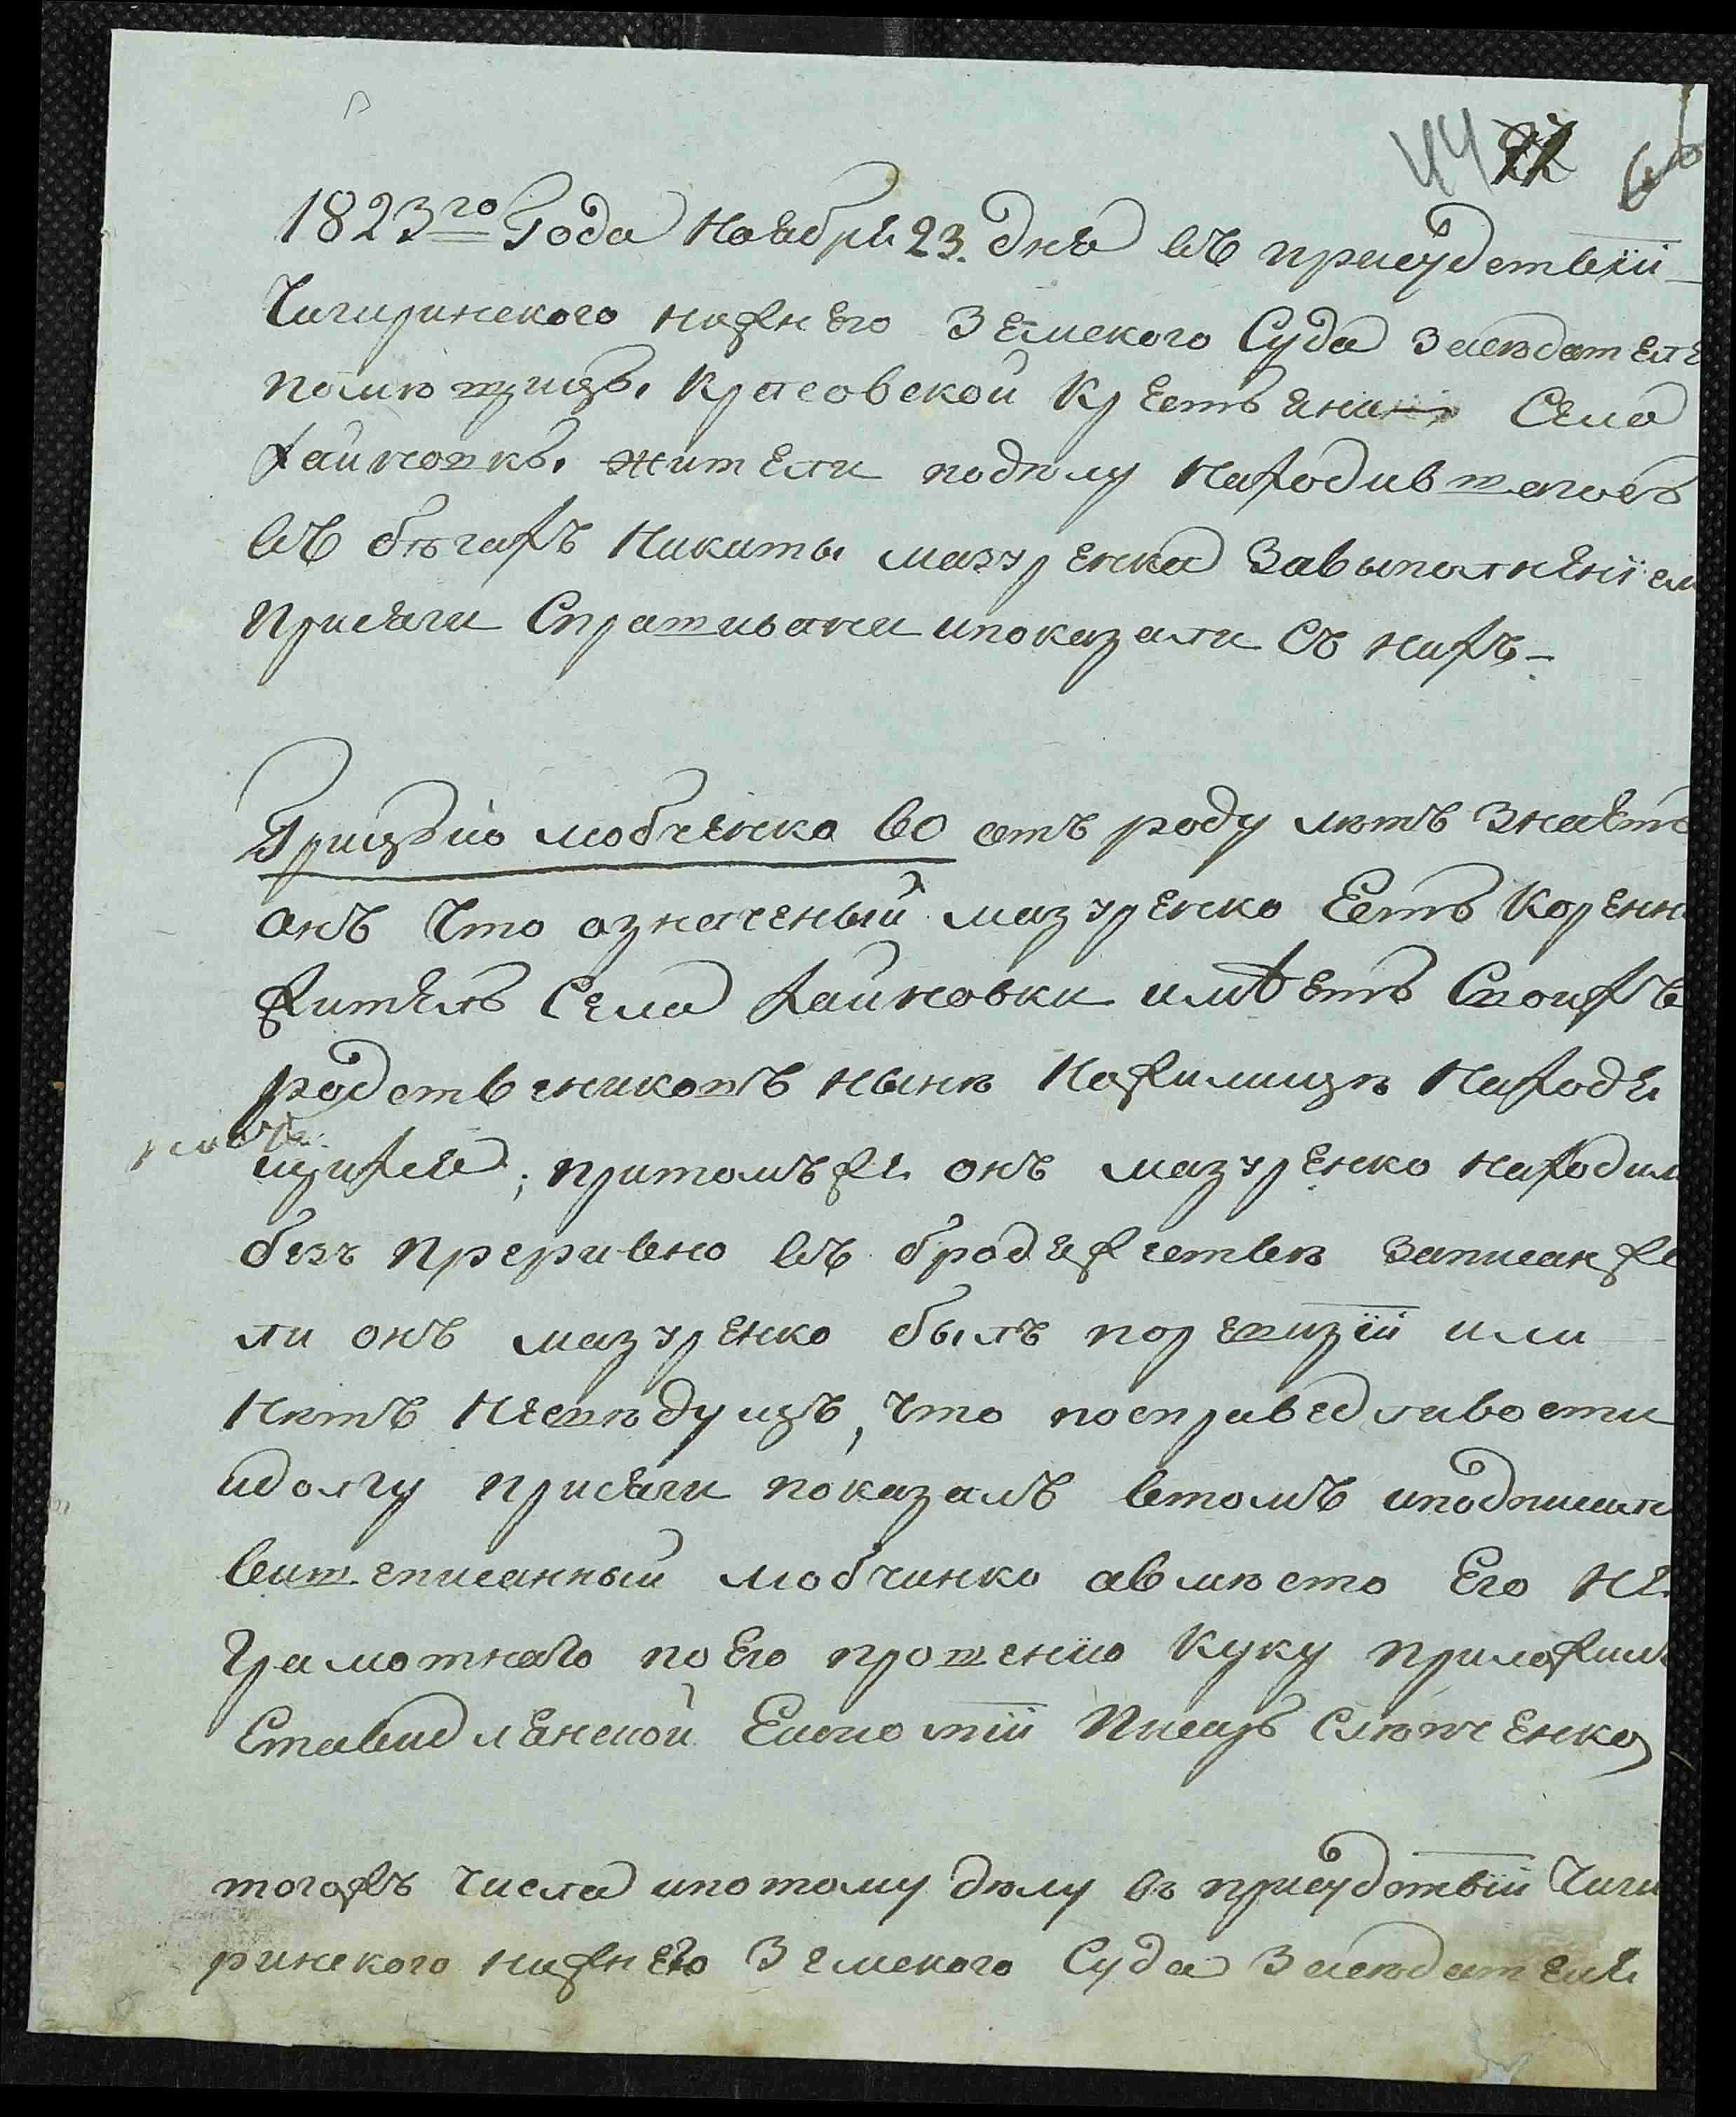 44
1823го Года Ноября 23. дня въ присудствіи
Чигиринского нижнего Земского Суда Заседателя
помѣщицы Красовской Крестьяни Села
Хайновкы жители подѣлу находившагося
въ бѣгахъ Никиты мазуренка Завыполненіем
Присяги Спрашивани ипоказали Съ нихъ
Грицько мовченко 60 отъ роду лѣтъ знаетъ
онъ Что означеный мазуренко Есть Коренн
житель Села Хайновки имѣетъ Своихъ
родствениковъ нынѣ Нажилищѣ Находя
щихся; притомъже онъ мазуренко находил
безъ преривно въ бродяжествѣ записанже
ли онъ мазуренко былъ поревизіи или
Нѣтъ Несвѣдущъ, Что посправедливости
идолгу присяги показалъ втомъ иподписался
вишеписанный мовчинко авмѣсто Его не
Грамотнаго поЕго прошенію Руку приложилъ
Ставидлянской Економіи Писарь
тогожъ Числа ипотому дѣлу въ присудствіи Чиги
ринского нижнего Земского Суда Заседателя